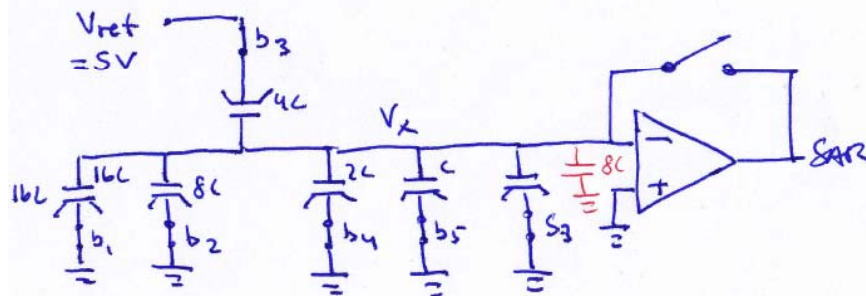 Vref
=5V
b3
4C
Vx
16C 16C
8C
2C
C
8C
−
+
SAR
b1
b2
b4
b5
S3